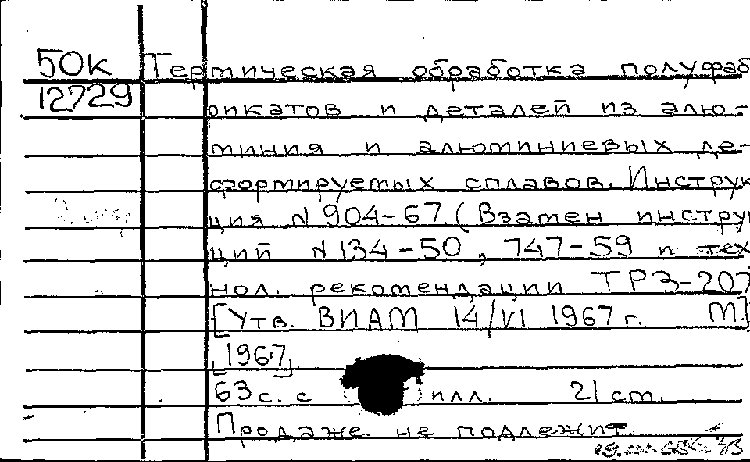 50к Термическая обработка полуфаб
12729 рикатов и деталей из алю-
миния и алюминиевых де-
формируемых сплавов. Инструк
ция N 904-67 (Взамен инстру
ций N 134-50, 747-59 и тех
нол. рекомендации ТРЗ-207
[Утв. ВИАМ 14/VI 1967 г. М.]
[1967]
63 с. с илл. 21 см.
Продаже не подлежит